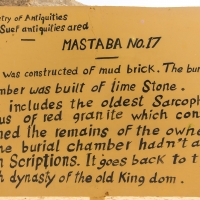 try of Antiquities
Suef antiquities area
MASTABA No.17
was constructed of mud brick. The bur
mber was built of lime Stone.
includes the oldest Sarcoph
us of red granite which con
ned the remains of the owne
he burial chamber hadn"t a
n Scriptions. It goes back to t
h dynasty of the old King dom.